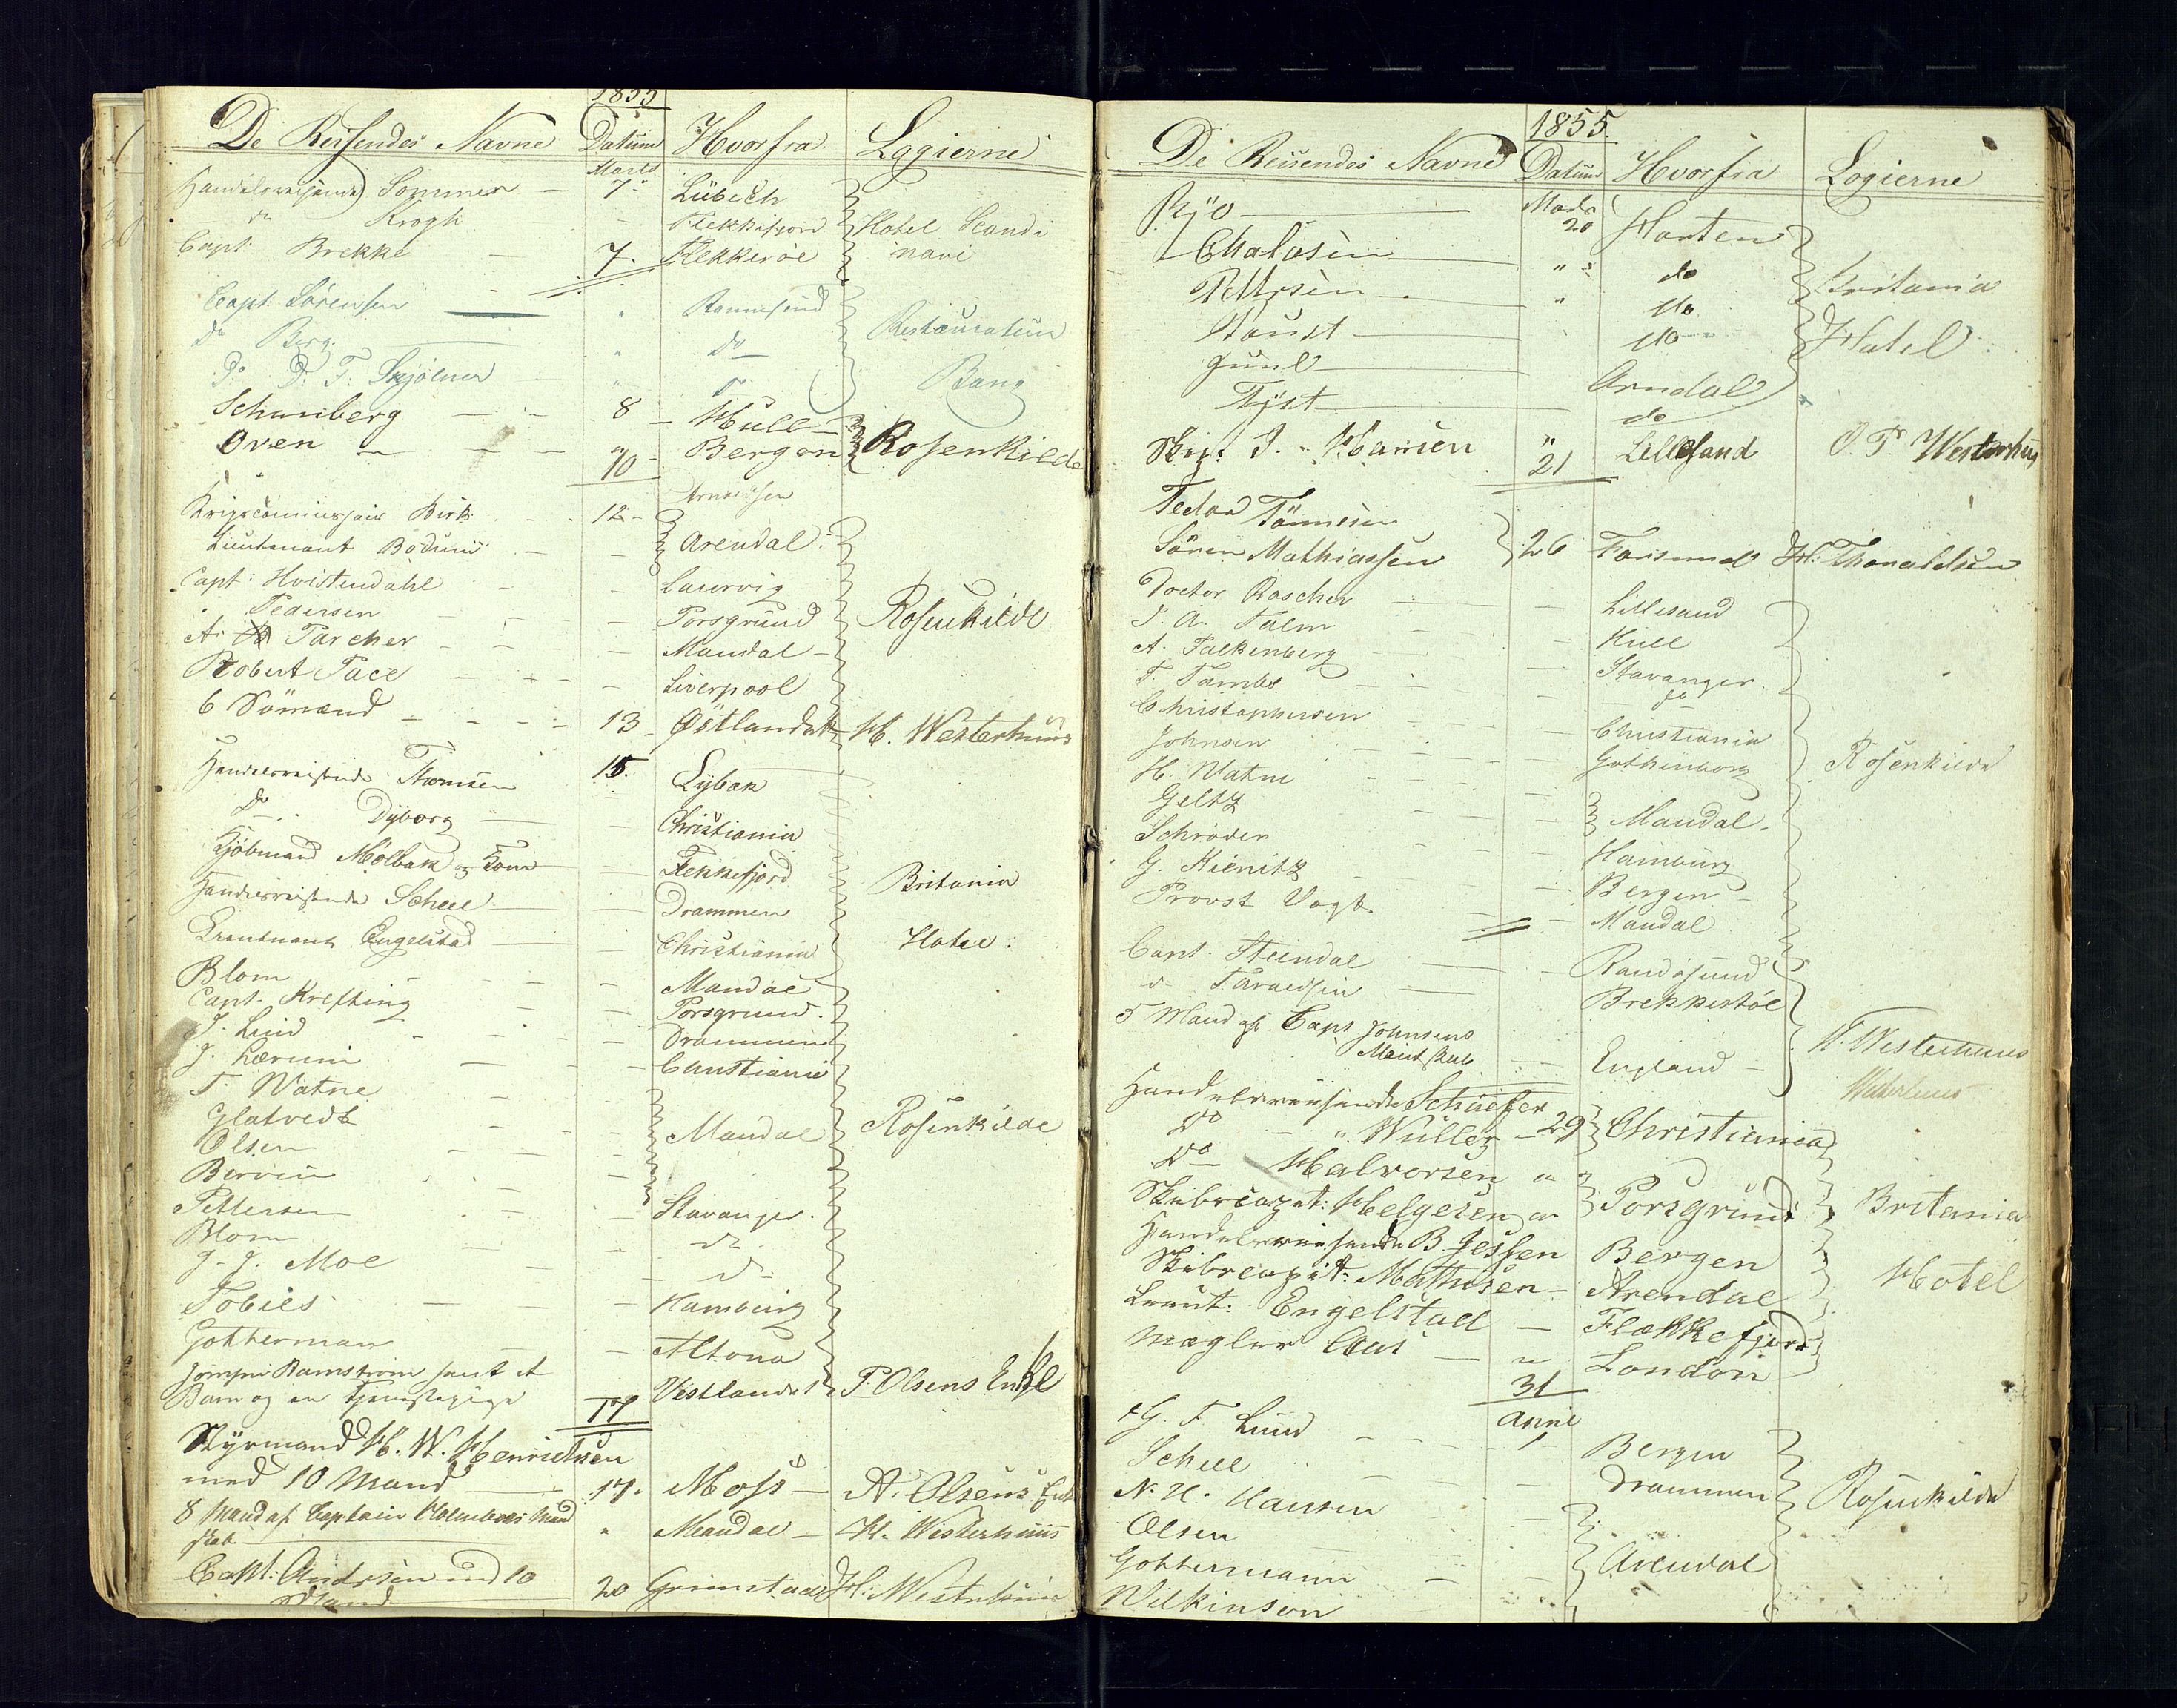 1855
De Reisendes Navne Datum Hvorfra Logierne
Marts
Handelsreisende Sommer 7 Lübech
do Krogh Flekkefjord Hotel Scandi
Capt. Brekke 7. Flekkeröe navi
Capt. Sörensen " Ronnesund Restaurateur
do Berg " do
do D. F. Skjölner " Bang
Schanberg 8 Hull
Oven " Bergen Rosenkilde
10
Krigscommissair Birk 12
Lieutenant Bödum Arendal
Capt: Hvistendahl Laurvig
Pedersen Porsgrund Rosenkilde
A. Parcher Mandal
Robert Pace Liverpool
6 Sömænd 13 Østlandet H. Westerhuus
Handelsreisende Thomsen 15. Lybæk
do Dyborg Christiania
Kjöbmand Mölbak og Flekkefjord Britania
Handelsreisende Scheel Drammen
Lieutnant Engelstad Christiania Hotel.
Blom Mandal
Capt. Krefting Porsgrund.
J. Lund Drammen
J. Lærum Christiania
T. Watne
Glatvedt Mandal Rosenkilde
Olsen
Berven
Pettersen Stavanger.
Blom do
J. J. Moe do
Tobies Hamburg
Gotterman Altona
Jomfru Ramström samt et
Barn og en Tjenestepige 17 Vestlandet P. Olsens Enke
Styrmand H. W. Henrichsen
med 10 Mand 17. Moss A. Olsens Enke
8 Mand af Captain Mand
skab " Mandal H. Westerhuus
Capt: Andrsen med 10 20 Grimstad H. Westerhuus
Mand
1855.
De Reisendes Navne Datum Hvorfra Logierne
Marts
20 Horten
" do Britania
Pettrsen " do
do Hotel
Juul Arndal
do
Skip. J. Hansen " Lillesand J. T. Westerhuus
21
Tedor Tönnesen
Sören Mathiassen 26 Farsund H. Thoraldsen
Doctor Roscher Lillesand
J. A. Falm Hull
A. Falkenberg Stavanger.
T. Tambs do
Christophersen Christiania
Johnsen Gothenborg Rosenkilde
H. Watne
Geltz Mandal.
Schröder Hamburg
G. Kienitz Bergen
Provst Vogt Mandal
Capt. Steendal Randösund
do Taraldsen Brekkestöe
5 Mand af Capt Johnsens
Mandskab England H. Westerhuus
Westerhuus
Handelsreisende Schiefer
Do " Wüller 29 Christiania
Do Halvorsen " Porsgrund
Skibscapt: Helgesen " Britania
Handelsreisende B. Jessen Bergen
Skibscapit: Mathisen Arendal Hotel
Leeut: Engelstad Flækkefjord
Mægler " London
31
April
G. F. Lund 1 Bergen
Scheel Drammen Rosenkilde
N. H. Hansen
Olsen Arendal
Gottermann
Wilkinson